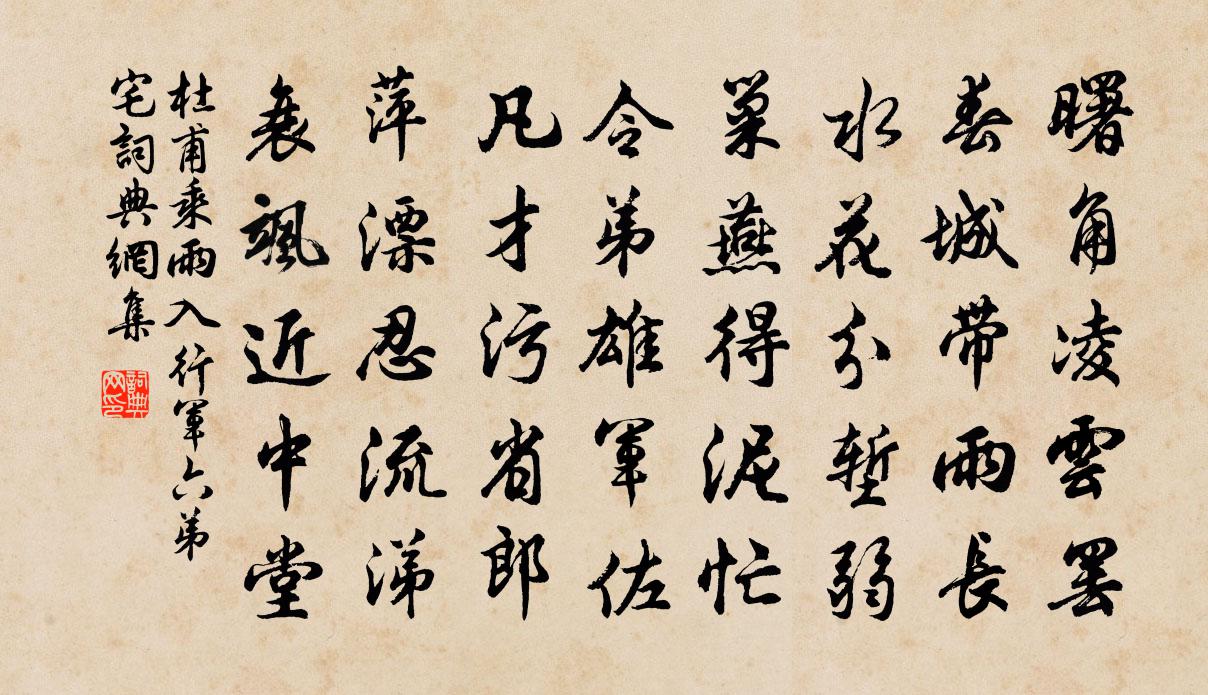 曙角凌雲罢
春城带雨長
水花分塹弱
巢燕得泥忙
令弟雄軍佐
凡才污省郎
萍漂忍流涕
衰颯近中堂
杜甫乘雨入行軍六弟
宅詞典網集
詞典网印